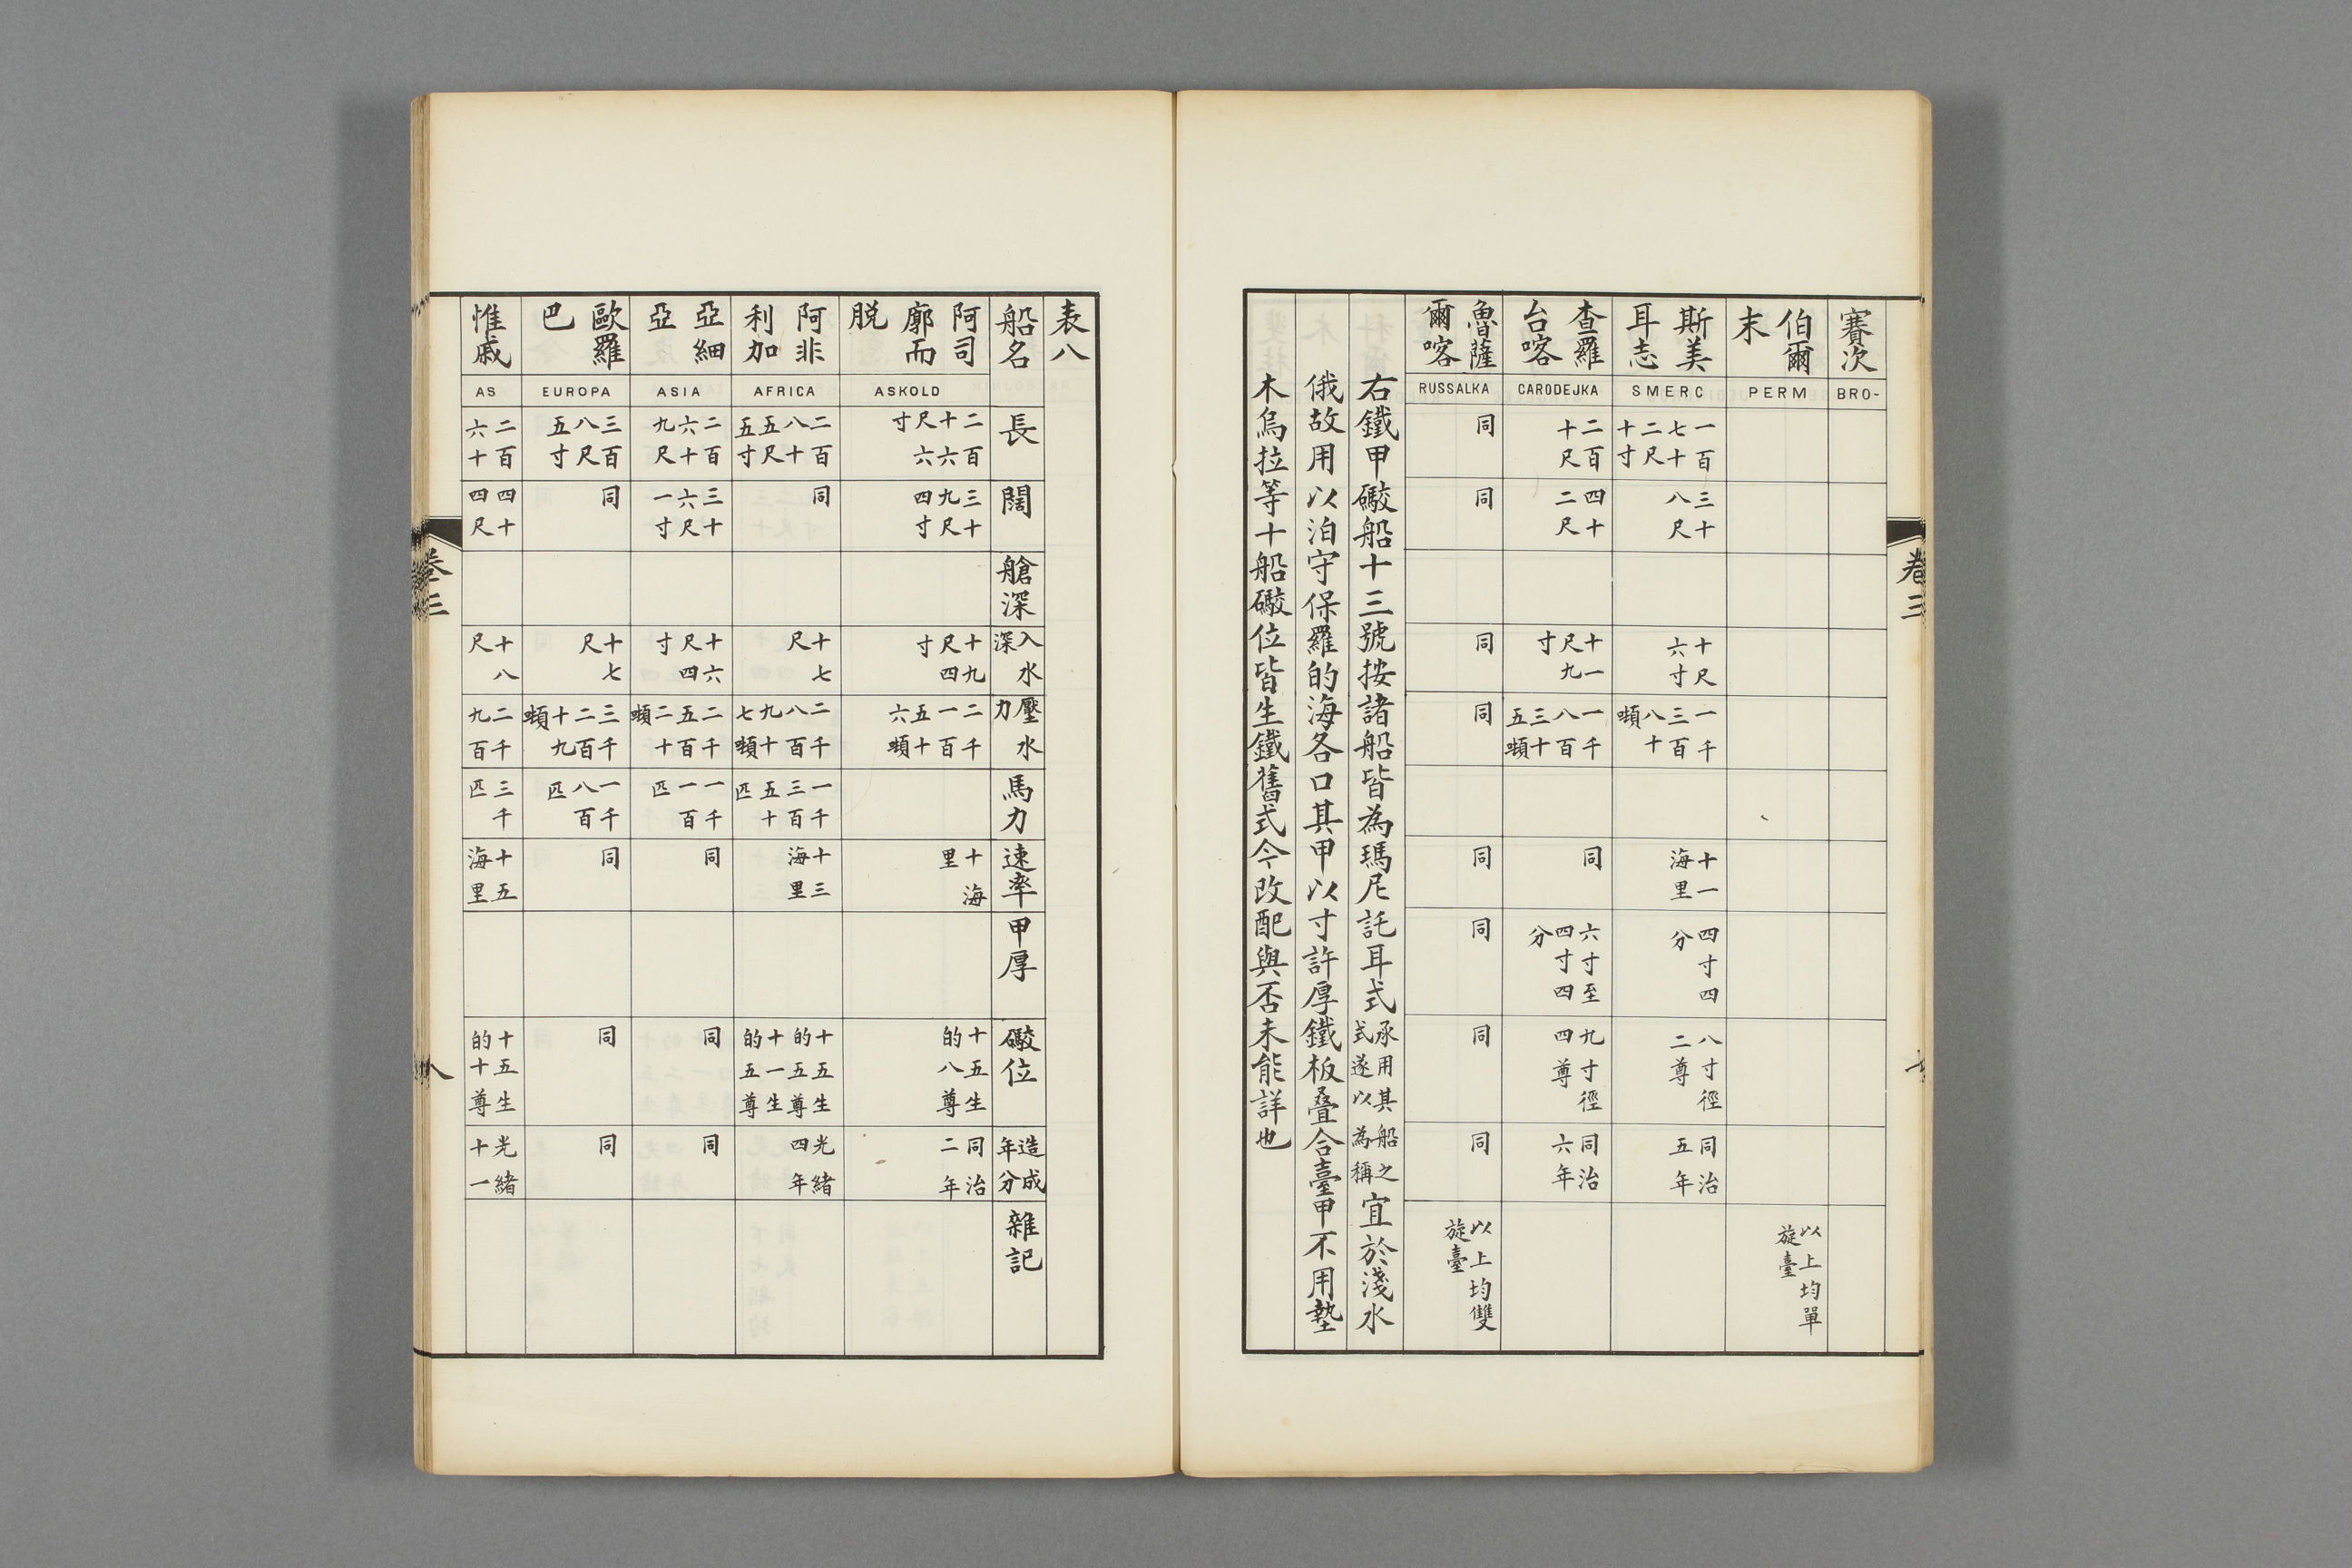 卷三
七
賽次 BRO-
伯爾末 PERM 以上均單旋臺
斯美耳志 SMERC 一百七十二尺十寸 三十八尺 十尺六寸 一千三百八十噸 十一海里 四寸四分 八寸徑二尊 同治五年
查羅台喀 CARODEJKA 二百十尺 四十二尺 十一尺九寸 一千八百三十五噸 同 六寸至四寸四分 九寸徑四尊 同治六年
魯薩爾喀 RUSSALKA 同 同 同 同 同 同 同 同 以上均雙旋臺
右鐵甲礮船十三號按諸船皆為瑪尼託耳式承用其船之式遂以為稱宜於淺水
俄故用以泊守保羅的海各口其甲以寸許厚鐵板疊合臺甲不用墊
木烏拉等十船礮位皆生鐵舊式今改配與否未能詳也
表八
船名 長 闊 艙深 入水深 壓水力 馬力 速率 甲厚 礮位 造成年分 雜記
阿司廓而脫 ASKOLD 二百十六尺六寸 三十九尺四寸 十九尺四寸 二千一百五十六噸 十海里 十五生的八尊 同治二年
阿非利加 AFRICA 二百八十五尺五寸 同 十七尺 二千八百九十七噸 一千三百五十匹 十三海里 十五生的五尊十一生的五尊 光緒四年
亞細亞 ASIA 二百六十九尺 三十六尺一寸 十六尺四寸 二千五百二十噸 一千一百匹 同 同 同
歐羅巴 EUROPA 三百八尺五寸 同 十七尺 三千二百十九噸 一千八百匹 同 同 同
惟戚 AS 二百六十 四十四尺 十八尺 二千九百 三千匹 十五海里 十五生的十尊 光緒十一
卷三
八